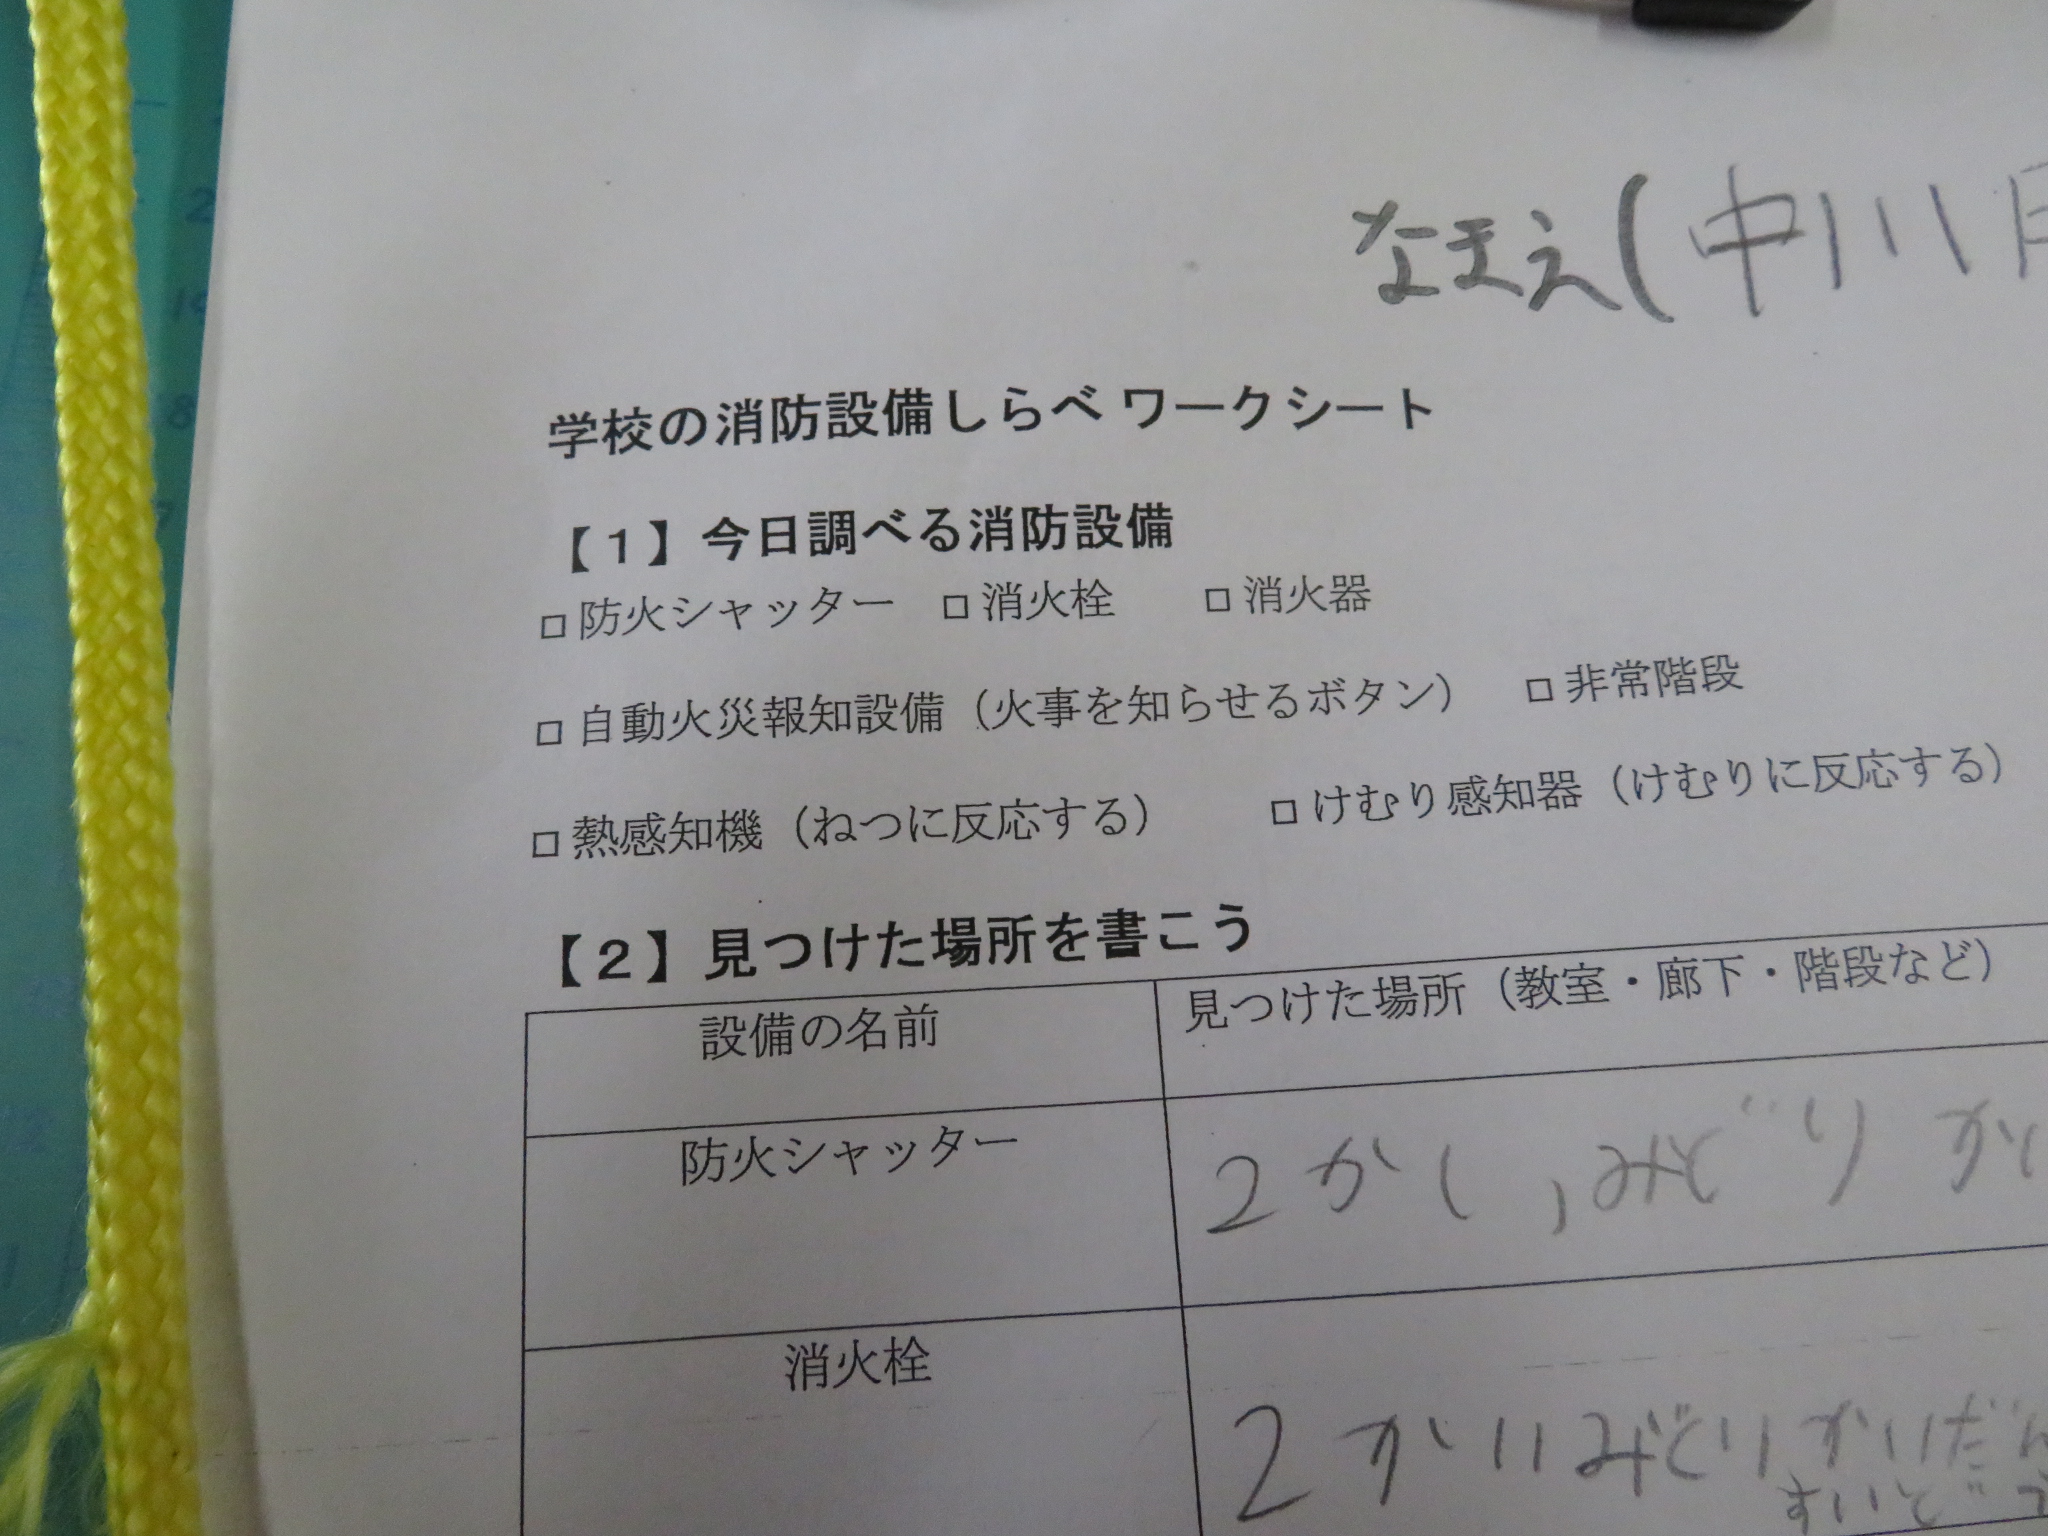 なまえ(中川
学校の消防設備しらべ ワークシート
【1】今日調べる消防設備
□ 防火シャッター □ 消火栓 □ 消火器
□ 自動火災報知設備（火事を知らせるボタン） □ 非常階段
□ 熱感知機（ねつに反応する） □ けむり感知器（けむりに反応する）
【2】見つけた場所を書こう
設備の名前 見つけた場所（教室・廊下・階段など）
防火シャッター 2かい,みどりか
消火栓 2かいみどりかいだん
すいど